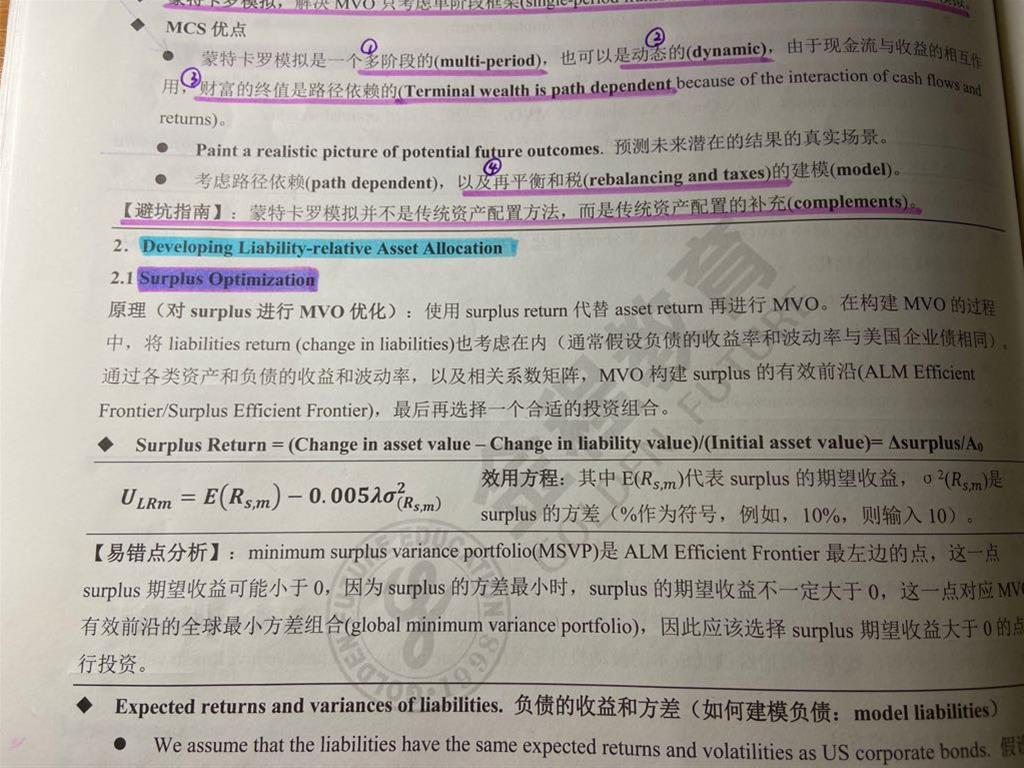 蒙特卡罗模拟，解决 MVO 只考虑单阶段框架(single-period
◆ MCS 优点
● 蒙特卡罗模拟是一个多阶段的(multi-period)，也可以是动态的(dynamic)，由于现金流与收益的相互作
① ②
用，财富的终值是路径依赖的(Terminal wealth is path dependent because of the interaction of cash flows and
③
returns)。
● Paint a realistic picture of potential future outcomes. 预测未来潜在的结果的真实场景。
● 考虑路径依赖(path dependent)，以及再平衡和税(rebalancing and taxes)的建模(model)。
④
【避坑指南】：蒙特卡罗模拟并不是传统资产配置方法，而是传统资产配置的补充(complements)。
2. Developing Liability-relative Asset Allocation
2.1 Surplus Optimization
原理（对 surplus 进行 MVO 优化）：使用 surplus return 代替 asset return 再进行 MVO。在构建 MVO 的过程
中，将 liabilities return (change in liabilities)也考虑在内（通常假设负债的收益率和波动率与美国企业债相同）。
通过各类资产和负债的收益和波动率，以及相关系数矩阵，MVO 构建 surplus 的有效前沿(ALM Efficient
Frontier/Surplus Efficient Frontier)，最后再选择一个合适的投资组合。
◆ Surplus Return = (Change in asset value – Change in liability value)/(Initial asset value)= Δsurplus/A₀
U_LRm = E(R_s,m) − 0.005λσ²_(R_s,m)
效用方程：其中 E(R_s,m)代表 surplus 的期望收益，σ²(R_s,m)是
surplus 的方差（%作为符号，例如，10%，则输入 10）。
【易错点分析】：minimum surplus variance portfolio(MSVP)是 ALM Efficient Frontier 最左边的点，这一点
surplus 期望收益可能小于 0，因为 surplus 的方差最小时，surplus 的期望收益不一定大于 0，这一点对应 MVO
有效前沿的全球最小方差组合(global minimum variance portfolio)，因此应该选择 surplus 期望收益大于 0 的点
行投资。
◆ Expected returns and variances of liabilities. 负债的收益和方差（如何建模负债：model liabilities）
● We assume that the liabilities have the same expected returns and volatilities as US corporate bonds. 假
金程教育
GOLDEN FUTURE
GOLDEN FUTURE EDUCATION 1998